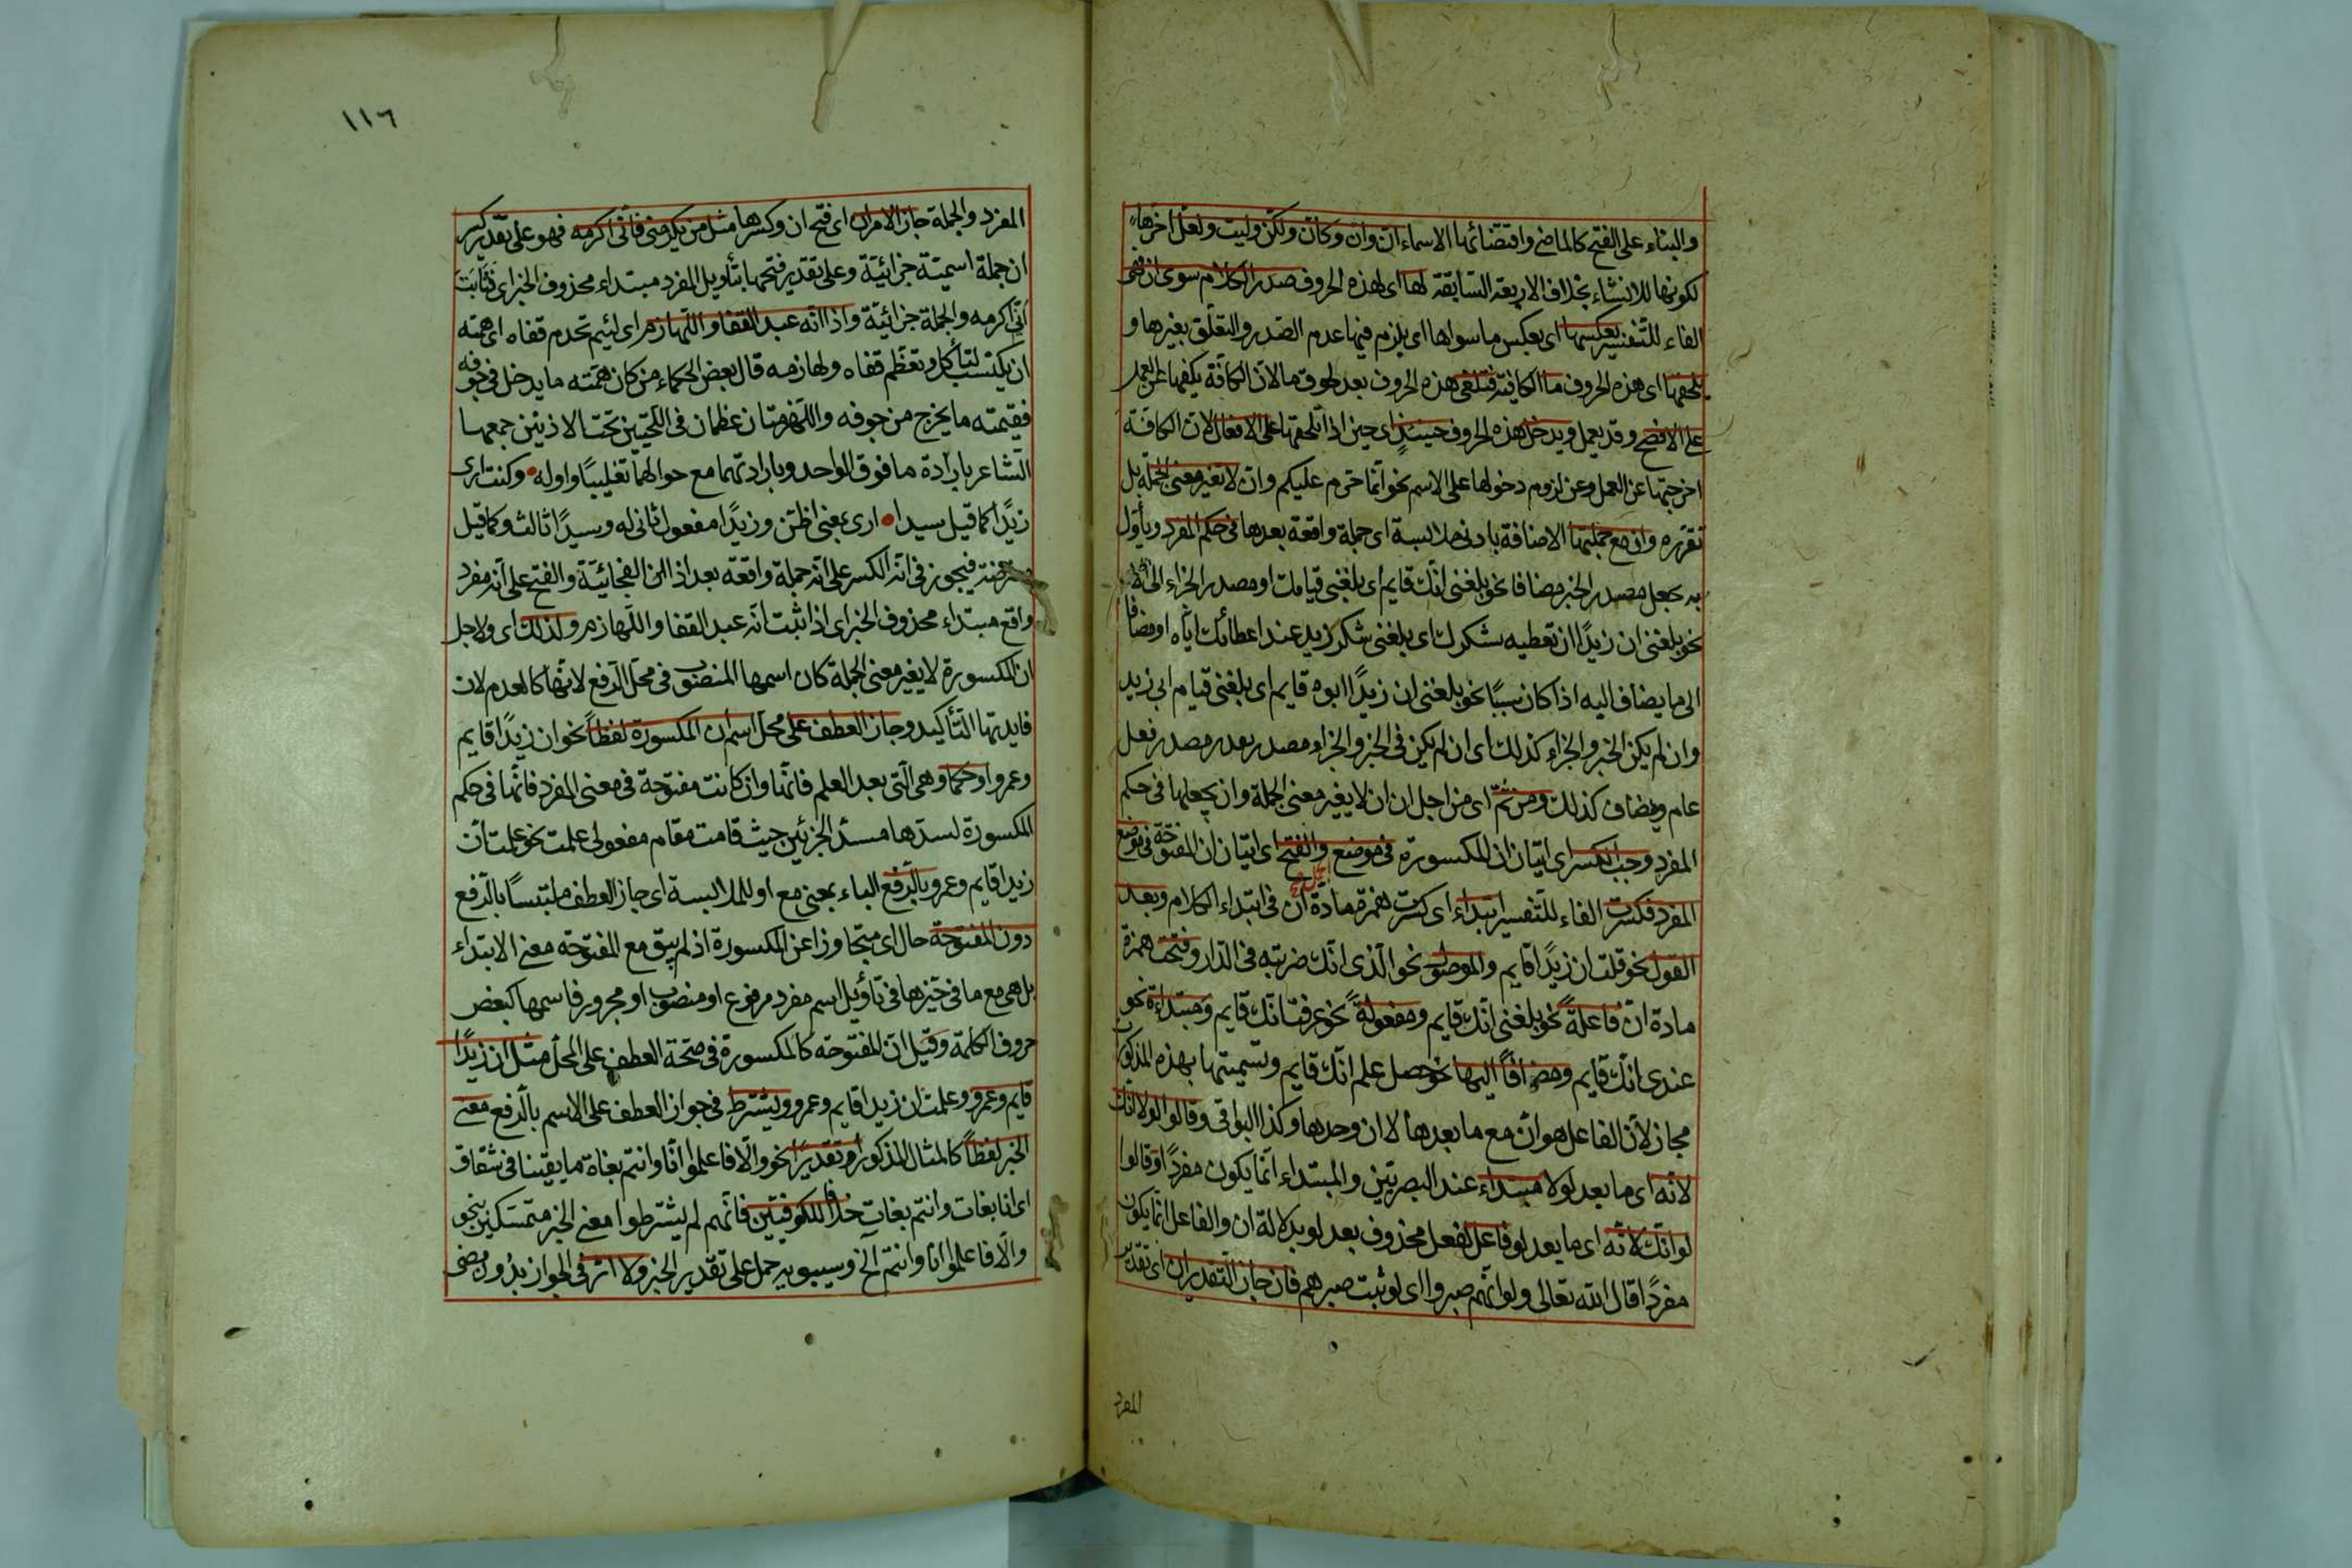 والبناء على الفتح كالماضى واقتضائها الاسماء ان وان وكان ولكن وليت ولعل اخرها
لكونها للانشاء بخلاف الاربعة السابقة لها اى لهذه الحروف صدر الكلام سوى ان فهى
الفاء للتفسير بعكسها اى بعكس ما سواها اى يلزم فيها عدم الصدر والتعلق بغيرها و
يلحقها اى هذه الحروف ما الكافة فتلغى هذه الحروف بعد لحوق ما لان الكافة يكفها عن العمل
على الافصح وقد يعمل ويدخل هذه الحروف حينئذ اى حين اذا تلحقها على الافعال لان الكافة
اخرجتها عن العمل وعن لزوم دخولها على الاسم نحو انما حرم عليكم وان لا تغير معنى الجملة بل
تقرره وان مع جملتها الاضافة بادنى ملابسة اى جملة واقعة بعدها فى حكم المفرد ويأول
به بجعل مصدر الخبر مضافا نحو بلغنى انك قايم أى بلغنى قيامك او مصدر الجزاء
نحو بلغنى ان زيدًا ان تعطيه يشكرك اى بلغنى شكر زيد عند اعطائك اياه او مضافا
الى ما يضاف اليه اذا كان سببيا نحو بلغنى ان زيدًا ابوه قايم اى بلغنى قيام ابى زيد
وان لم يكن الخبر والجزاء كذلك اى ان لم يكن فى الخبر والجزاء مصدر يقدر مصدر فعل
عام ويضاف كذلك ومن ثم اى من اجل ان ان لا يغير معنى الجملة وان يجعلها فى حكم
المفرد وجب الكسر اى اتيان ان المكسورة فى موضع والفتح اى اتيان ان المفتوحة فى موضع
المفرد فكسرت الفاء للتفسير ابتداء اى كسرت همزة مادة ان فى ابتداء الكلام وبعد
القول نحو قلت ان زيدًا قايم والموصول نحو الذى انك ضربته فى الدار وفتحت همزة
مادة ان فاعلةً نحو بلغنى انك قايم ومفعولةً نحو عرفت انك قايم ومبتداءة نحو
عندى انك قايم ومضافًا اليها نحو حصل علم انك قايم وتسميتها بهذه المذكورات
مجاز لان الفاعل هو ان مع ما بعدها لا ان وحدها وكذا البواقى وقالوا لولا انك
لانه اى ما بعد لولا مبتداء عند البصريين والمبتداء انما يكون مفردًا وقالوا
لو انك لانه اى ما بعد لو فاعل لفعل محذوف بعد لو بدلالة ان والفاعل انما يكون
مفردًا قال الله تعالى ولو انهم صبروا اى لو ثبت صبرهم فان جاز التقديران اى تقدير
المفرد
١١٦
المفرد والجملة جاز الامران اى فتح ان وكسرها مثل من يكرمنى فانى اكرمه فهو على تقدير كسر
ان جملة اسمية جزائية وعلى تقدير فتحها بتأويل المفرد مبتداء محذوف الخبر اى فثابت
أنى اكرمه والجملة جزائية واذا انه عبد القفا واللهازم اى لئيم تخدم قفاه اى همته
ان يكتسب لتأكل وتعظم قفاه ولهازمه قال بعض الحكماء من كان همته ما يدخل فى جوفه
فقيمته ما يخرج من جوفه واللهزمتان عظمان فى اللحيين تحت الاذنين جمعهما
الشاعر بارادة ما فوق الواحد وبارادتهما مع حوالهما تغليبًا واوله وكنت ارى
زيدًا كما قيل سيدا ارى بمعنى اظن وزيدًا مفعول ثانى له وسيدًا ثالث وكما قيل
معترضة فيجوز فى انه الكسر على انه جملة واقعة بعد اذا الفجائية والفتح على انه مفرد
واقع مبتداء محذوف الخبر اى اذا ثبت انه عبد القفا واللهازم ولذلك اى ولاجل
ان المكسورة لا يغير معنى الجملة كان اسمها المنصوب فى محل الرفع لانها كالعدم لان
فايدتها التأكيد وجاز العطف على محل اسم ان المكسورة لفظاً نحو ان زيدًا قايم
وعمرو او حكما وهى التى بعد العلم فانها وان كانت مفتوحة فى معنى المفرد فانها فى حكم
المكسورة لسدها مسد الجزئين حيث قامت مقام مفعولى علمت نحو علمت ان
زيدا قايم وعمرو بالرفع الباء بمعنى مع او للملابسة اى جاز العطف ملتبسًا بالرفع
دون المفتوحة حال اى متجاوزا عن المكسورة اذ لم يبق مع المفتوحة معنى الابتداء
بل هى مع ما فى حيزها فى تاويل اسم مفرد مرفوع او منصوب او مجرور فاسمها كبعض
حروف الكلمة وقيل ان المفتوحة كالمكسورة فى صحة العطف على المحل مثل ان زيدًا
قايم وعمرو وعلمت ان زيدا قايم وعمرو ويشترط فى جواز العطف على الاسم بالرفع مضى
الخبر لفظاً كالمثال المذكور او تقديرًا نحو والا فاعلموا انا وانتم بغاة ما بقينا فى شقاق
اى انا بغات وانتم بغات خلافا للكوفيين فانهم لم يشترطوا معنى الخبر متمسكين بنحو
والا فاعلموا انا وانتم الخ وسيبويه حمل على تقدير الخبر ولا اثر فى الجواز بدون مضى